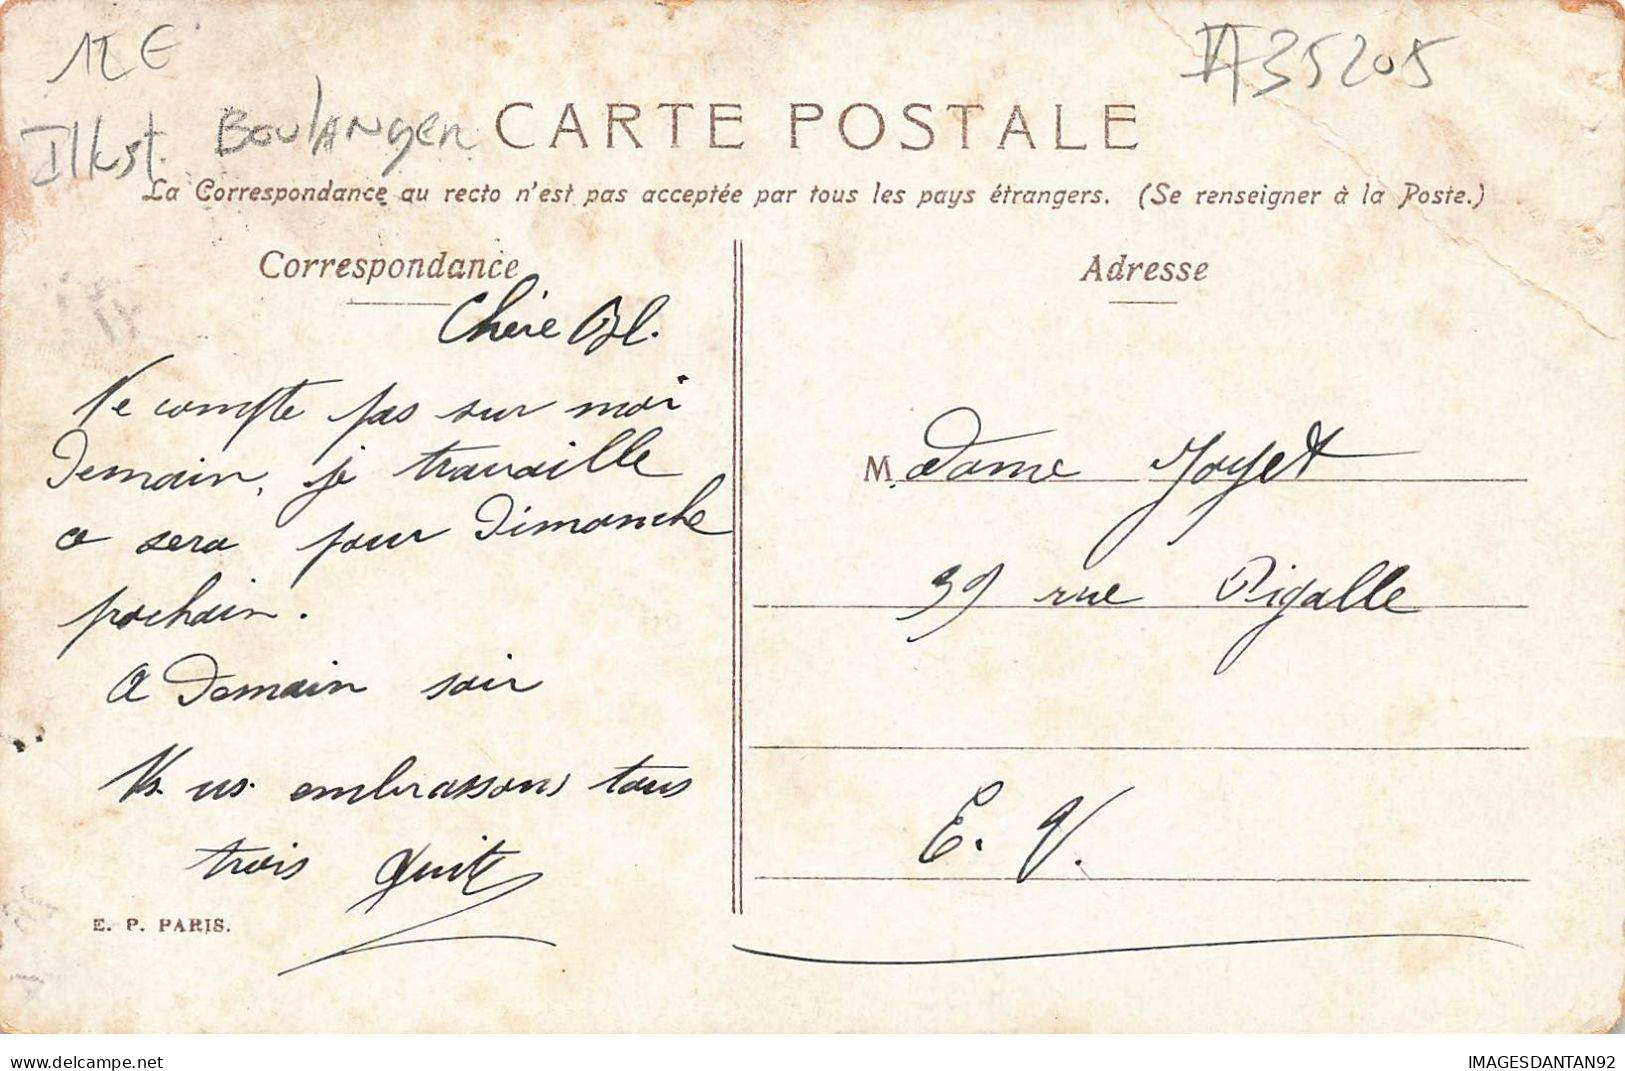 12 €
A35205
Illust. Boulanger
CARTE POSTALE
La Correspondance au recto n'est pas acceptée par tous les pays étrangers. (Se renseigner à la Poste.)
Correspondance
Chère Bl.
Ne compte pas sur moi
Demain, je travaille
ce sera pour Dimanche
prochain.
A Demain soir
Ns. us. embrassons tous
trois
E. P. PARIS.
Adresse
Madame Joyet
39 rue Pigalle
E. V.
delcampe.net
IMAGESDANTAN92